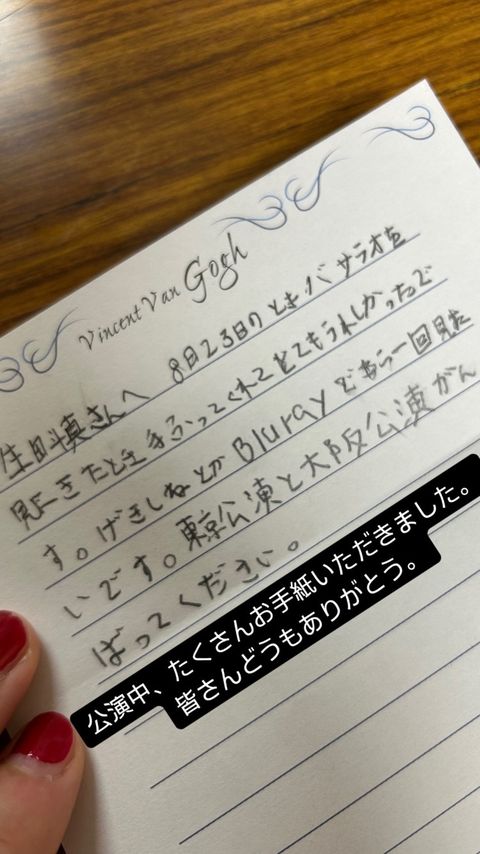 Vincent Van Gogh
生田斗真さんへ 8日23日のときバサラオを
見にきたとき手ふってくれてとてもうれしかったで
す。げきしねとかBlurayでもう一回見た
いです。東京公演と大阪公演がん
ばってください。
公演中、たくさんお手紙いただきました。
皆さんどうもありがとう。